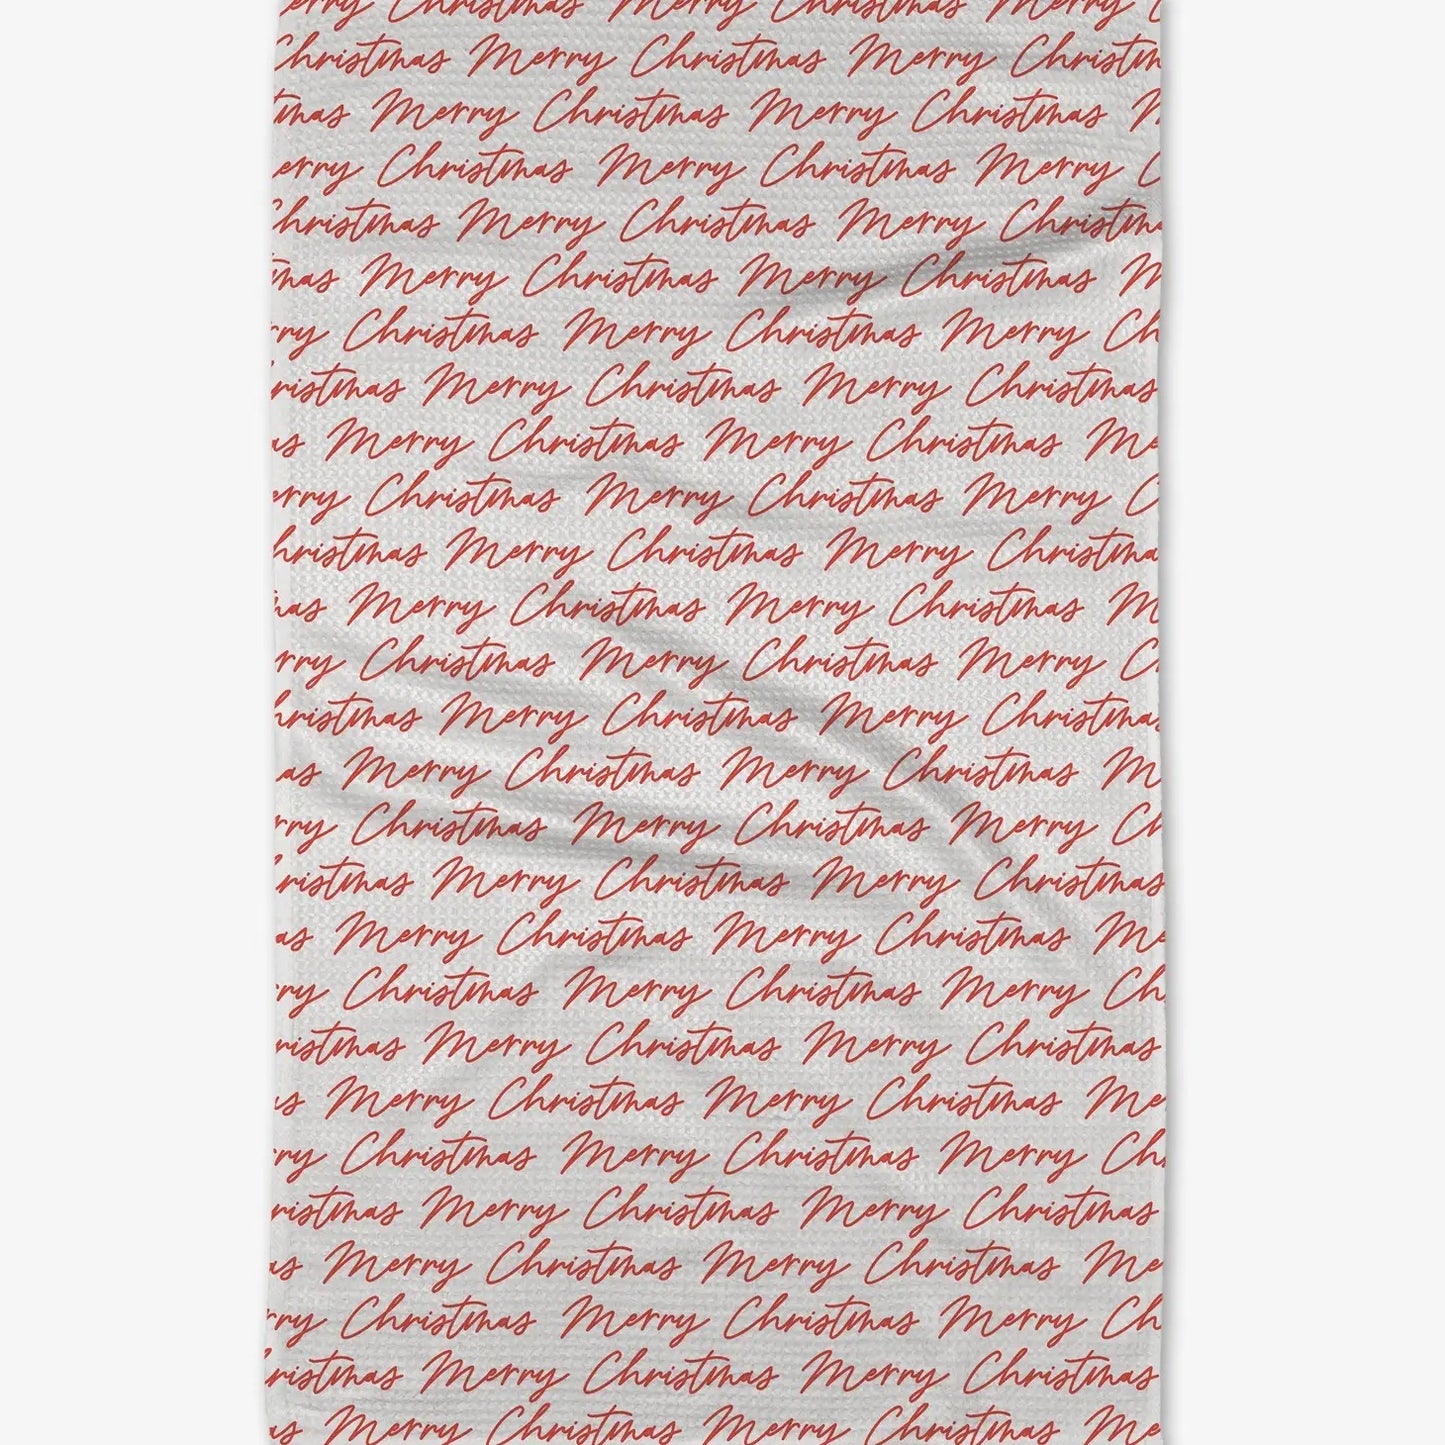 erry Christmas Merry Christmas Merry C
Christmas Merry Christmas Merry Christm
tmas Merry Christmas Merry Christmas M
erry Christmas Merry Christmas Merry C
Christmas Merry Christmas Merry Christm
mas Merry Christmas Merry Christmas M
rry Christmas Merry Christmas Merry Ch
ristmas Merry Christmas Merry Christmas
as Merry Christmas Merry Christmas Me
erry Christmas Merry Christmas Merry C
hristmas Merry Christmas Merry Christma
as Merry Christmas Merry Christmas M
rry Christmas Merry Christmas Merry C
hristmas Merry Christmas Merry Christma
as Merry Christmas Merry Christmas M
rry Christmas Merry Christmas Merry Ch
ristmas Merry Christmas Merry Christmas
as Merry Christmas Merry Christmas Me
ry Christmas Merry Christmas Merry Ch
ristmas Merry Christmas Merry Christmas
s Merry Christmas Merry Christmas Me
ry Christmas Merry Christmas Merry Ch
ristmas Merry Christmas Merry Christmas
as Merry Christmas Merry Christmas Me
rry Christmas Merry Christmas Merry Ch
ristmas Merry Christmas Merry Christmas
as Merry Christmas Merry Christmas Me